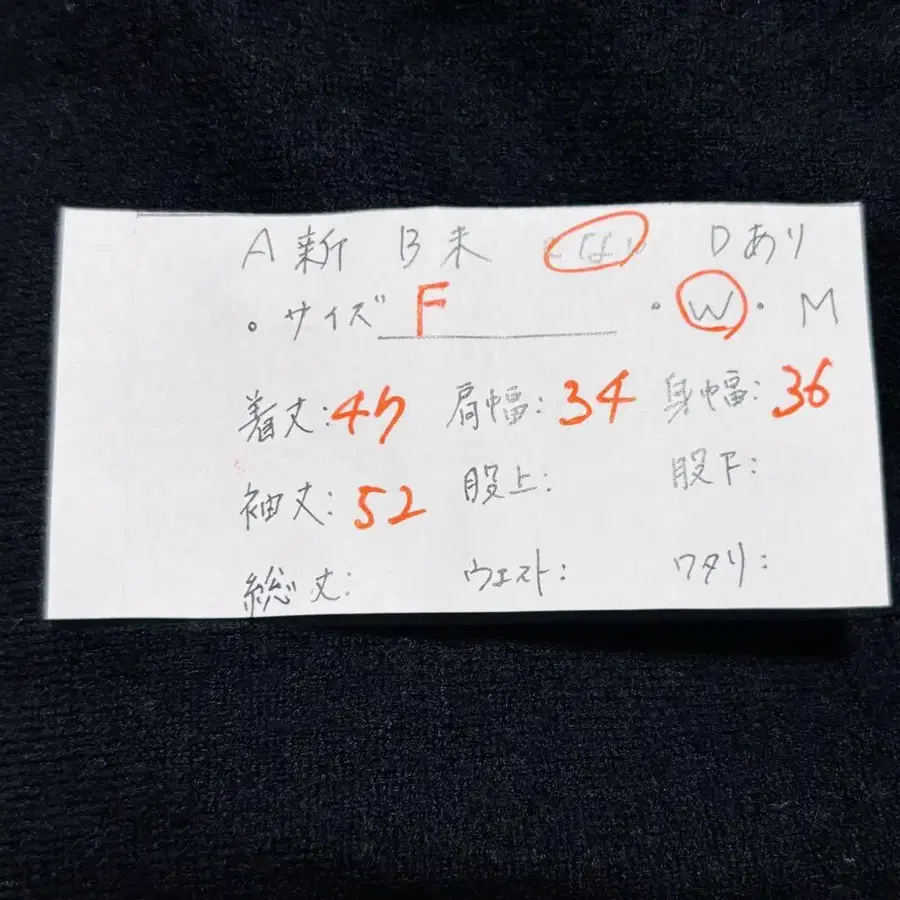 A 新 B 未 C なし D あり
・サイズ F ・W・M
着丈:47 肩幅:34 身幅:36
袖丈:52 股上: 股下:
総丈: ウエスト: ワタリ: